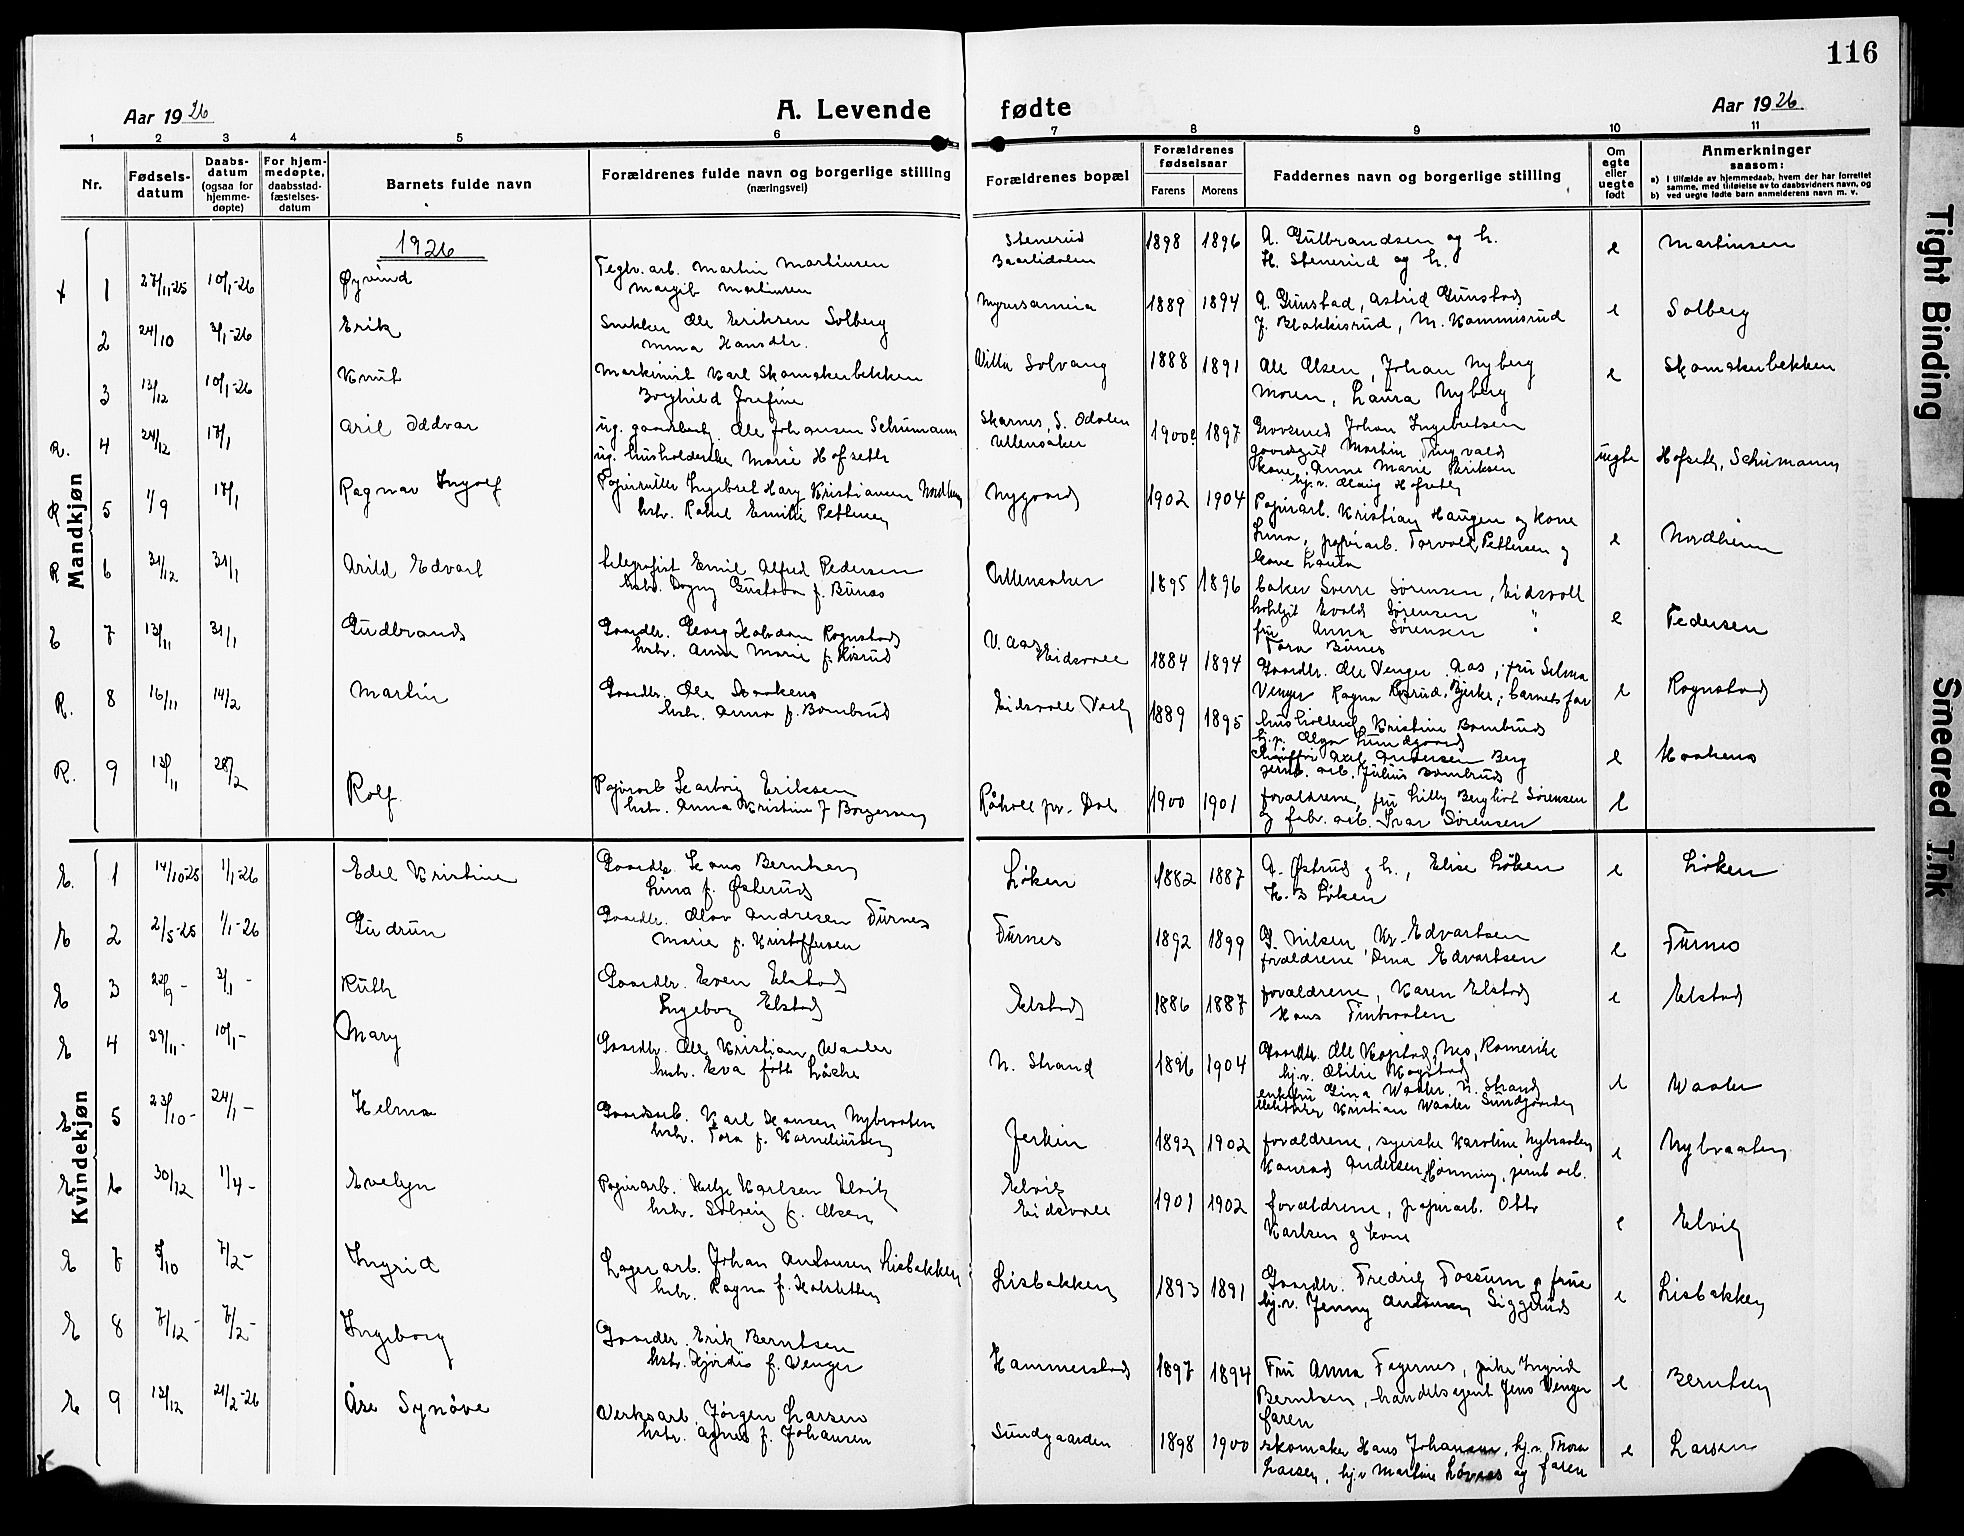 116
Aar 1926
A. Levende fødte
Aar 1926
1 2 3 4 5 6 7 8 9 10 11
Nr.
Fødsels-datum
Daabs-datum (ogsaa for hjemme-døpte)
For hjem-medøpte, daabsstad-fæstelses-datum
Barnets fulde navn
Forældrenes fulde navn og borgerlige stilling
(næringsvei)
Forældrenes bopæl
Forældrenes fødselsaar
Farens Morens
Faddernes navn og borgerlige stilling
Om egte eller uegte født
Anmerkninger
saasom:
a) I tilfælde av hjemmedaab, hvem der har forrettet samme, med tilføielse av to daabsvidners navn, og
b) ved uegte fødte barn anmelderens navn m. v.
Mandkjøn
1926
1 27/11-25 10/1-26 Øyvind Teglv.arb. Martin Martinsen Stenerud 1898 1896 A. Gulbrandsen og h. e Martinsen
Margit Martinsen Baarlidalen H. Stenerud og h.
2 24/10 3/1-26 Erik Snekker Ole Eriksen Solberg 1889 1894 A. Gunstad, Astrid Gunstad e Solberg
Hansdtr. J. Blakkisrud, M. Kammisrud
3 13/12 10/1-26 Knut Karl Skomakerbekken Villa Solvang 1888 1891 Ole Olsen, Johan Nyberg e Skomakerbekken
Borghild Josefine Moren, Laura Nyberg
R. 4 24/12 17/1 Aril Oddvar ug. gaardbest. Ole Johansen Schumann Skarnes, S. Odalen 1900 1897 Grovsmed Johan Ingebretsen uegte Hofseth, Schumann
ug. husholderske Marie Hofseth Ullensaker gaardsgut Martin Tingvald
kone, Anne Marie Eriksen
hj.v. Hofseth
R 5 1/9 17/1 Ragnar Ingolf Papirruller Ingebret Harry Kristiansen Nordheim Nygaard 1902 1904 Papirarb. Kristian Haugen og kone e Nordheim
hstr. Emilie Pettersen Lina, papirarb. Torvald Pettersen og
kone Laura
R 6 31/12 31/1 Arild Edvart telegrafist Emil Alfred Pedersen Ullensaker 1895 1896 baker Sverre Sørensen, Eidsvoll e Pedersen
hstr. Dagny Gustava f. Bunæs Evald Sørensen "
fru Anna Sørensen "
Tora Bunes
E 7 13/11 31/1 Gudbrand Gaardbr. Georg Halvdan Rognstad V. Aas 1884 1894 Gaardbr. Ole Venger, Aas, fru Selma e Rognstad
hstr. Anna Marie f. Risrud Eidsvoll Venger Ragna Risrud, Bjerke, barnets far
R. 8 16/11 14/2 Martin Gaardbr. Ole Haakens Eidsvoll Verk 1889 1895 Kristine Bombrud e Haakens
hstr. Anna f. Bombrud hj.v. Olga Lundgaard
Chauffør Axel Andersen Berg
jernb. arb. Julius Bombrud
R. 9 13/11 28/2 Rolf Papirarb Hartvig Eriksen Råholt pr. Dal 1900 1901 forældrene, fru Lilly Bergliot Sørensen e
hstr. Anna Kristine f Borgersen og fabr. arb. Ivar Sørensen
Kvindekjøn
E. 1 14/10-25 1/1-26 Edel Kristine Gaardbr. Hans Berntsen Løken 1882 1887 A. Østrud og h., Elise Løken e Løken
Lina f. Østerud H. B Løken
E 2 2/5-25 1/1-26 Gudrun Gaardbr. Olav Andresen Furnes Furnes 1892 1899 G. Nilsen, Kr. Edvartsen e Furnes
Marie f. Kristoffersen forældrene Edvartsen
E 3 22/9- 3/1- Ruth Gaardbr. Even Elstad Elstad 1886 1887 forældrene, Karen Elstad e Elstad
Ingeborg Elstad Hans Finbraaten
E 4 29/11- 10/1- Mary Gaardbr. Ole Kristian Waaler N. Strand 1896 1904 Gaardbr. Ole Kogstad, Nes, Romerike e Waaler
hustr. Eva født Låche hj.v. Otilie Kogstad
enkefru Gina Waaler N. Strand
Kristian Waaler Sundgaarden
E 5 23/10- 24/1- Helma Gaardsarb. Karl Hansen Nybraaten Jerkin 1892 1902 forældrene, syerske Karoline Nybraaten e Nybraaten
hstr. Tora f. Korneliussen Konrad Andersen Hønning, jernb arb.
E 6 30/12 1/4- Evelyn Papirarb. Helge Karlsen Elvik Elvik 1901 1902 forældrene, papirarb. Otto e Elvik
hstr. Solveig f. Olsen Eidsvoll Karlsen og kone
E 7 5/10 7/2- Ingrid Lagerarb. Johan Antonsen Lisbakken Lisbakken 1893 1891 Gaardbr. Fredrik Fossum og frue e Lisbakken
hstr. Ragna f. Holsbitten hj.v. Jenny Antonsen Siggerud
E 8 7/12- 7/2- Ingeborg Gaardbr. Erik Berntsen Hammerstad 1897 1894 Fru Anna Fagernes, pike Ingrid e Berntsen
hstr. Hjørdis f. Venger Berntsen, handelsagent Jens Venger
faren
E 9 12/12 21/2-26 Åse Synøve Verksarb. Jørgen Larsen Sundgaarden 1898 1900 skomaker Hans Johansen, hj.v. Thora e Larsen
hstr. Agnes f. Johansen Larsen, hj.v Martine Løvaas og faren
Tight Binding
Smeared Ink